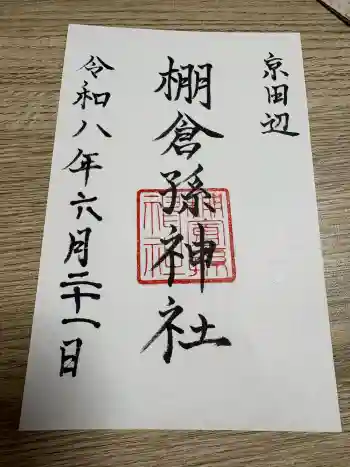 京田辺
棚倉孫神社
令和八年六月二十一日